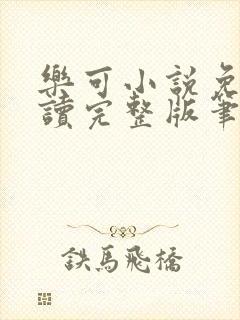 樂可小說免
讀完整版筆
鉄馬飛橋